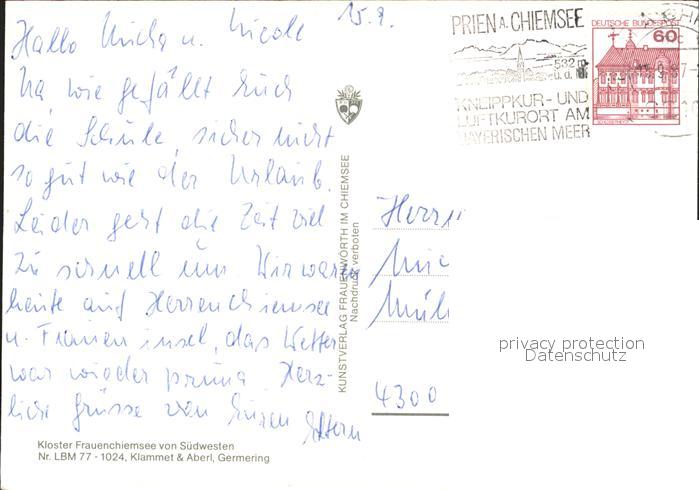 15.9.
Hallo Micha u. Nicole
Na, wie gefällt Euch
die Schule, sicher nicht
so gut wie der Urlaub.
Leider geht die Zeit viel
zu schnell um. Wir waren
heute auf Herrenchiemsee
u. Frauen insel, das Wetter
war wieder prima. Herz-
liche Grüsse von Euren Eltern
Kloster Frauenchiemsee von Südwesten
Nr. LBM 77 - 1024, Klammet & Aberl, Germering
KUNSTVERLAG FRAUENWÖRTH IM CHIEMSEE
Nachdruck verboten
PRIEN A. CHIEMSEE
532 m
ü. d. M.
KNEIPPKUR- UND
LUFTKURORT AM
BAYERISCHEN MEER
DEUTSCHE BUNDESPOST
60
Herrn
Mic
Mül
4300
privacy protection
Datenschutz